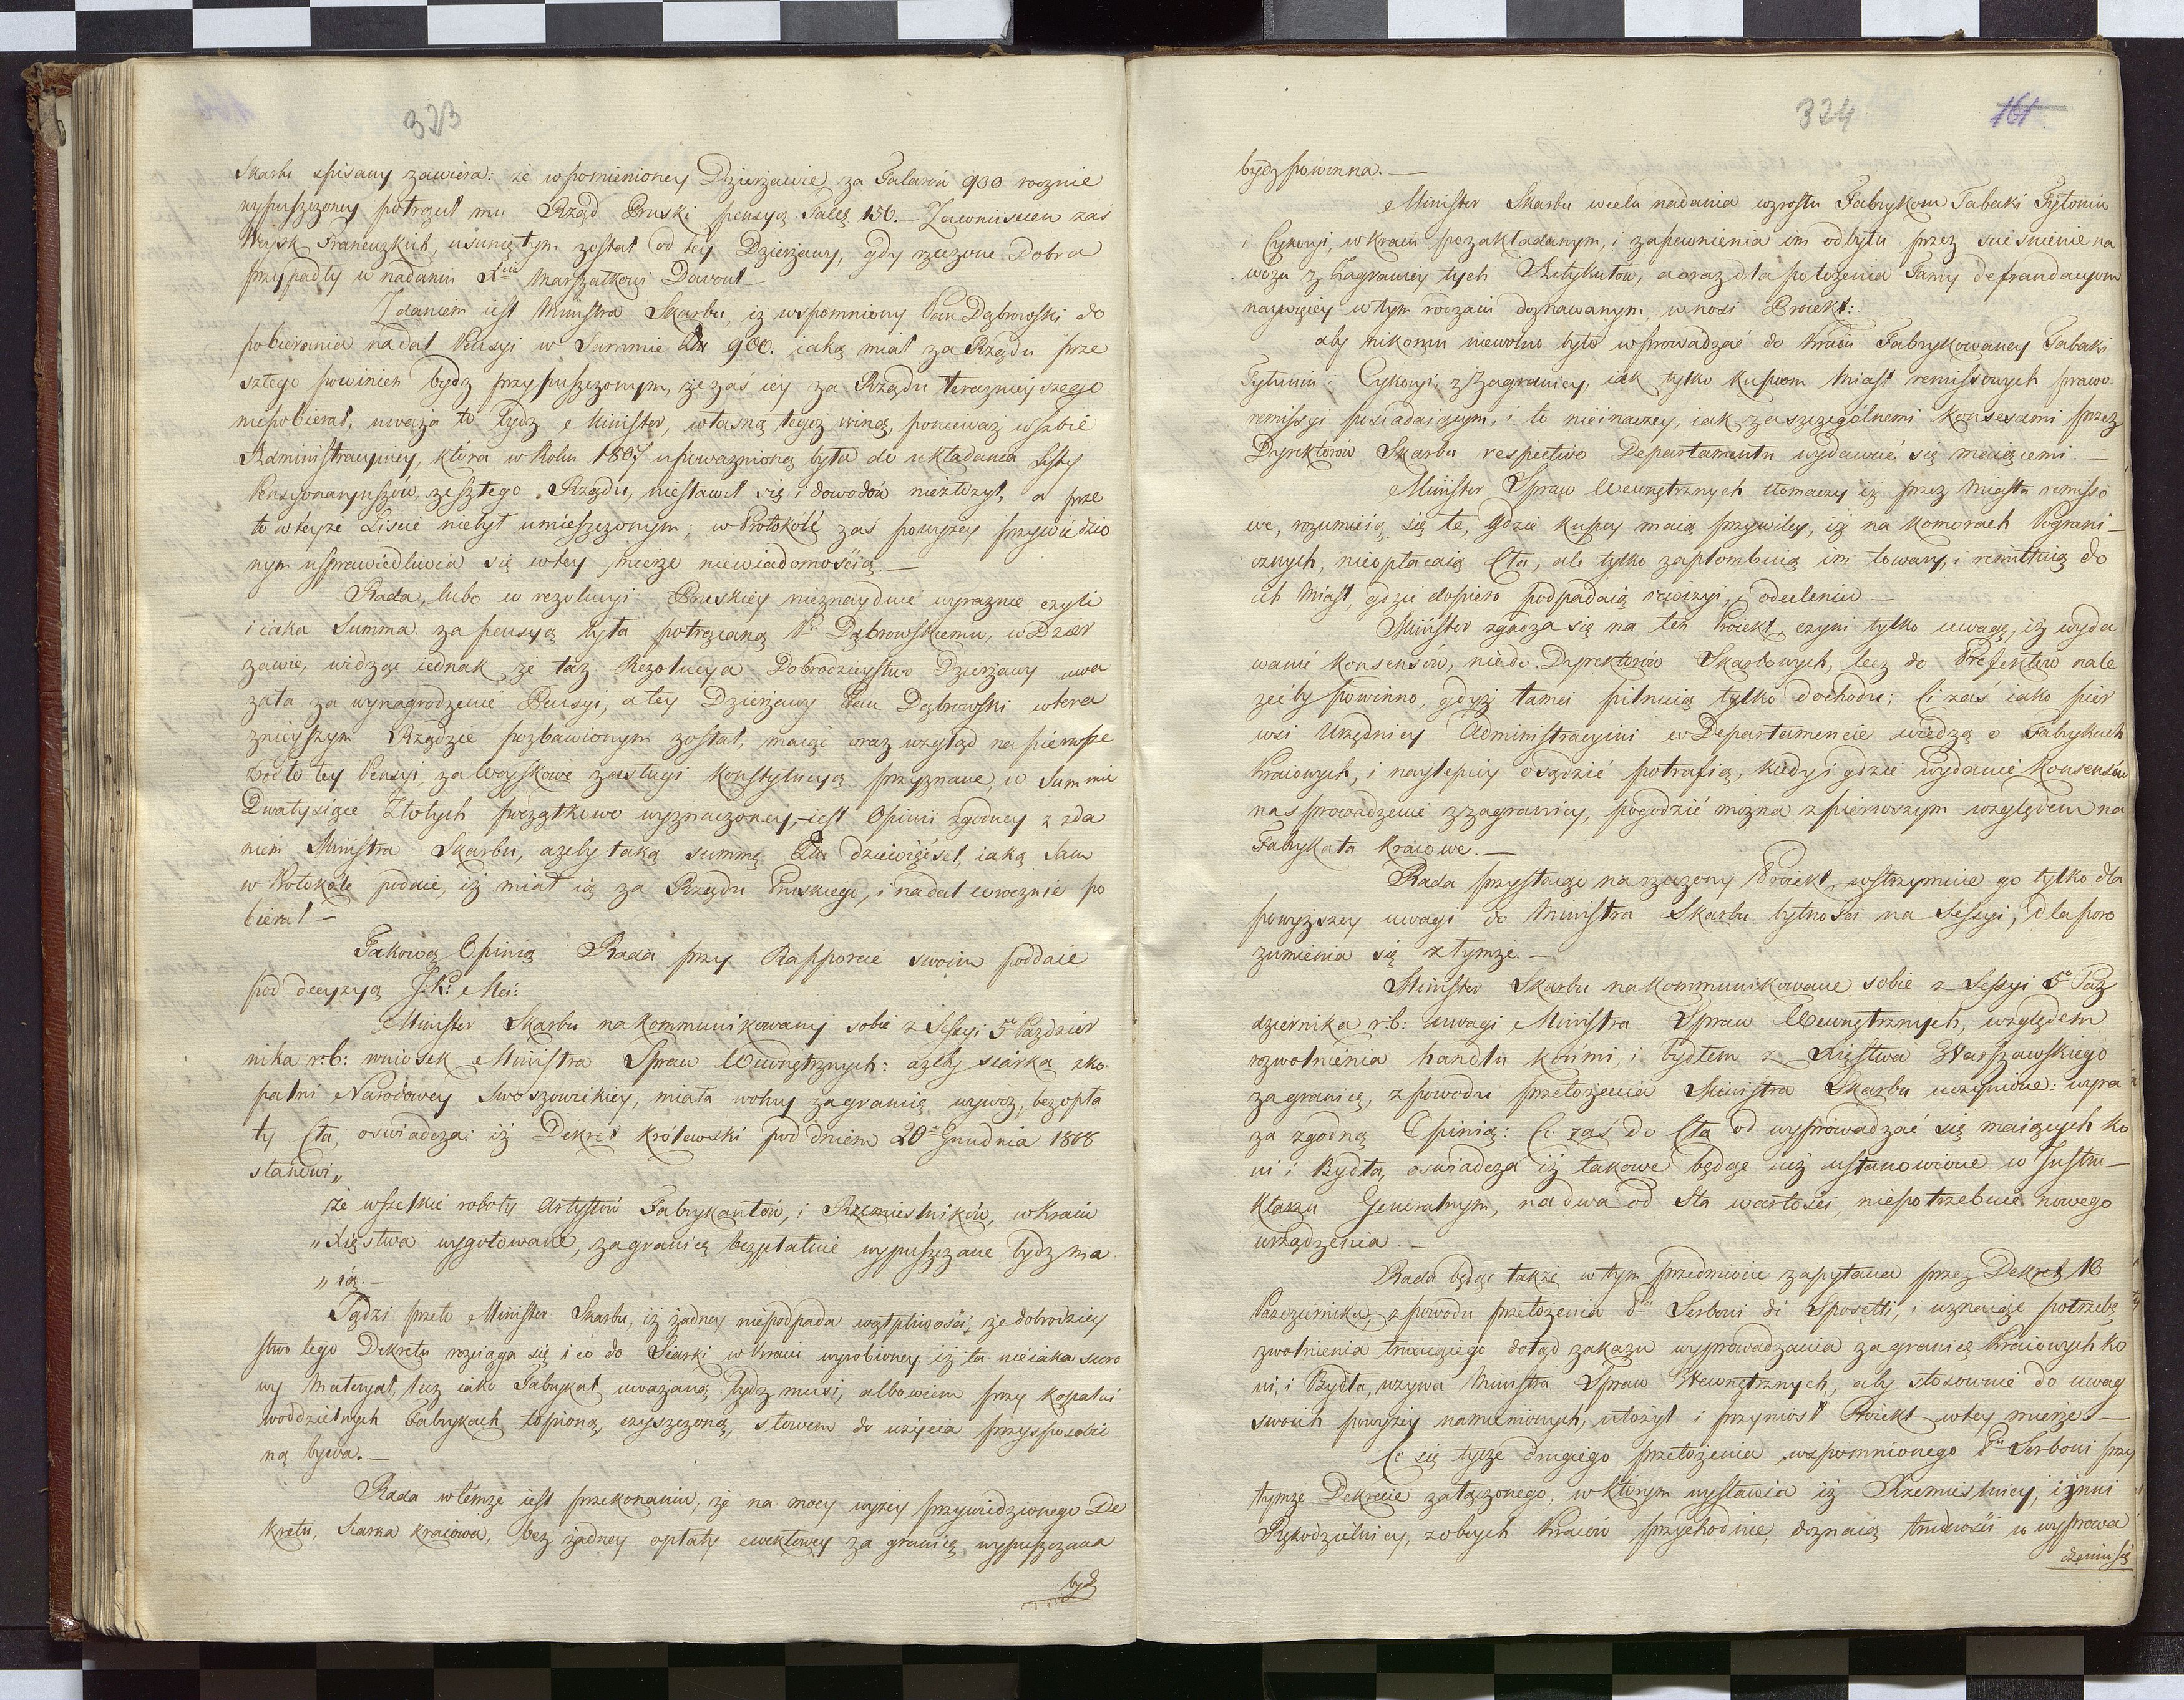 323
Skarbu spisany zawiera: że wspomnioney Dzierżawie za Talarów 930 rocznie
wypuszczoney potrącał mu Rząd Pruski pensyą Talą 150. – Za weniściem zaś
Woysk Francuzkich, usuniętym został od tey Dzierżawy, gdy rzeczone Dobra
przypadły w nadaniu Xciu Marszałkowi Davout –
Zdaniem iest Ministra Skarbu, iż wspomniony Pan Dąbrowski do
pobierania nadal Pensyi w Summie 900. iaką miał za Rządu prze
szłego powinien bydz przypuszczonym, że zaś iey za Rządu teraznieyszego
niepobierał, uważa to bydz Minister, własną tegoż winą, ponieważ w Izbie
Administracyiney, która w Roku 1807 upoważnioną była do układania Listy
Pensyonaryuszów, zeszłego Rządu, niestawił się i dowodów niezłożył, a prze
to w teyże Liście niebył umieszczonym; w Protokóle zaś powyżey przywiedzio
nym usprawiedliwia się w tey mierze niewiadomością. –
Rada, lubo w rezolucyi Pruskiey nieznayduie wyraznie czyli
i iaka Summa za pensyą była potrącaną Pu Dąbrowskiemu, w Dzier
żawie, widząc iednak że taż Rezolucya Dobrodzieystwo Dzierżawy uwa
żała za wynagrodzenie Pensyi, a tey Dzierżawy Pan Dąbrowski w tera
znieyszym Rządzie pozbawionym został, maiąc oraz wzgląd na pierwsze
zrodło tey Pensyi, za woyskowe zasługi konstytucyą przyznane, w Summie
Dwatysiące Złotych początkowo wyznaczoney, – iest Opinii zgodney z zda
niem Ministra Skarbu, ażeby taką summę dziewięćset, iaką Sam
w Protokóle podaie, iż miał ią za Rządu Pruskiego, i nadal corocznie po
bierał –
Takową Opinią Rada przy Rapporcie swoim poddaie
pod decyzyą J. K: Mci:
Minister Skarbu na kommunikowany sobie z Sessyi 5go Pazdzier
nika r: b: wniosek Ministra Spraw Wewnętrznych: ażeby siarka z ko
palni Narodowey Swoszowickiey, miała wolny zagranicę wywoz, bez opła
ty Cła, oswiadcza: iż Dekret królewski pod dniem 20go Grudnia 1808
stanowi„
że wszelkie roboty Artystów Fabrykantów, i Rzemieslników, w kraiu
„Xięstwa wygotowane, zagranicę bezpłatnie wypuszczane bydz ma
„ią. –
Sądzi przeto Minister Skarbu, iż żadney niepodpada wątpliwości, że dobrodziey
stwo tego Dekretu rozciąga się i co do Siarki w kraiu wyrobioney, iż ta nie iako suro
wy Materyał, lecz iako Fabrykat uważaną bydz musi, albowiem przy kopalni
w oddzielnych Fabrykach topioną, czyszczoną, słowem do użycia przysposobio
ną bywa. –
Rada w temże iest przekonaniu, że na mocy wyżey przywiedzionego De
kretu, Siarka kraiowa, bez żadney opłaty ewektowey za granicę wypuszczana
bydz
324
161
bydz powinna. –
Minister Skarbu w celu nadania wzrostu Fabrykom Tabaki Tytoniu
i Cykoryi, w kraiu pozakładanym, i zapewnienia im odbytu przez scieśnienie na
wozu z Zagranicy tych Artykułów, a oraz dla położenia Tamy defraudacyom
naywięcey w tym rodzaiu doznawanym, wnosi Proiekt:
aby nikomu niewolno było wprowadzać do kraiu Fabrykowaney Tabaki
Tytuniu i Cykoryi, z Zagranicy, iak tylko kupcom Miast remissowych prawo
remissyi posiadaiącym, i to nieinaczey, iak za szczególnemi konsensami przez
Dyrektorów Skarbu respective Departamentu wydawać się maiącemi. –
Minister Spraw Wewnętrznych tłomaczy iż przez miasta remisso
we, rozumieią się te, gdzie kupcy maią przywiley, iż na komorach Pograni–
cznych, nieopłacaią Cła, ale tylko zaplombuią im towary, i remittuią do
ich Miast, gdzie dopiero podpadaią rewizyi, i odcleniu –
Minister zgadza się na ten Proiekt czyni tylko uwagę, iż wyda
wanie konsensów, nie do Dyrektorów Skarbowych, lecz do Prefektów nale
żećby powinno, gdyż tamci pilnuią tylko dochodu; Ci zaś iako pier
wsi Urzędnicy Administracyini w Departamencie wiedzą o Fabrykach
kraiowych, i naylepiey osądzić potrafią, kiedy i gdzie wydanie konsensów
na sprowadzenie z zagranicy, pogodzić można z pierwszym względem na
Fabrykata kraiowe. –
Rada przystaiąc na rzeczony Proiekt, wstrzymuie go tylko dla
powyższey uwagi do Ministra Skarbu bytności na Sessyi, dla poro
zumienia się z tymże. –
Minister Skarbu na kommunikowane sobie z Sessyi 5go Paz
dziernika r: b: uwagi Ministra Spraw Wewnętrznych, względem
rozwolnienia handlu końmi, i bydłem z Xięstwa Warszawskiego
zagranicę, z powodu przełożenia Ministra Skarbu uczynione: wyra
za zgodną Opinią: Co zaś do Cła od wyprowadzać się maiących ko
ni i Bydła, oswiadcza iż takowe będąc iuż ustanowione w Instru–
ktarzu Generalnym, na dwa od sta wartości, niepotrzebuie nowego
urządzenia. –
Rada będąc także w tym przedmiocie zapytana przez Dekret 18
Pazdziernika, z powodu przełożenia Pa Serboni di Sposetti, i uznaiąc potrzebę
zwolnienia trwaiącego dotąd zakazu wyprowadzania zagranicę kraiowych ko
ni, i Bydła, wzywa Ministra Spraw Wewnętrznych, aby stosownie do uwag
swoich powyżey namienionych, ułożył i przyniosł Proiekt w tey mierze. –
Co się tycze drugiego przełożenia wspomnionego Pa Serboni przy
tymże Dekrecie załączonego, w którym wystawia iż Rzemieslnicy, i inni
Rękodzielnicy, z obcych kraiów przychodnie, doznaią trudności w wyprowa
dzeniu się